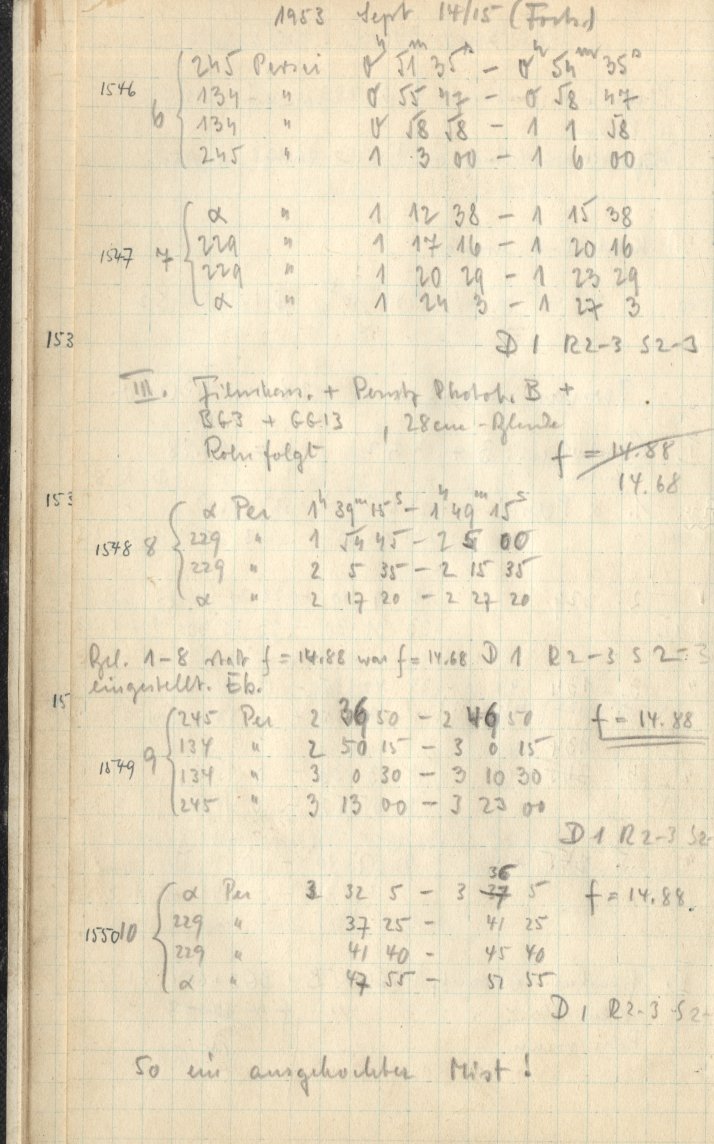 1953 Sept 14/15 (Forts.)
245 Persei 0h 51m 35s - 0h 54m 35s
1546 6 134 " 0 55 47 - 0 58 47
134 " 0 58 58 - 1 1 58
245 " 1 3 00 - 1 6 00
α " 1 12 38 - 1 15 38
1547 7 229 " 1 17 16 - 1 20 16
229 " 1 20 29 - 1 23 29
α " 1 24 3 - 1 27 3
153 D 1 R2-3 S2-3
III. + B +
BG3 + GG13, 28cm-Blende
Rohr folgt f = 14.88
14.68
153 α Per 1h 39m 15s - 1h 49m 15s
1548 8 229 " 1 54 45 - 2 5 00
229 " 2 5 35 - 2 15 35
α " 2 17 20 - 2 27 20
Bel. 1-8 statt f = 14.88 war f = 14.68 D 1 R2-3 S2-3
eingestellt. Eb.
15 245 Per 2 36 50 - 2 46 50 f = 14.88
134 " 2 50 15 - 3 0 15
1549 9 134 " 3 0 30 - 3 10 30
245 " 3 13 00 - 3 23 00
D 1 R2-3 S2-
36
α Per 3 32 5 - 3 37 5 f = 14.88.
1550 10 229 " 37 25 - 41 25
229 " 41 40 - 45 40
α " 47 55 - 51 55
D 1 R2-3 S2-
So ein ausgekochter Mist!